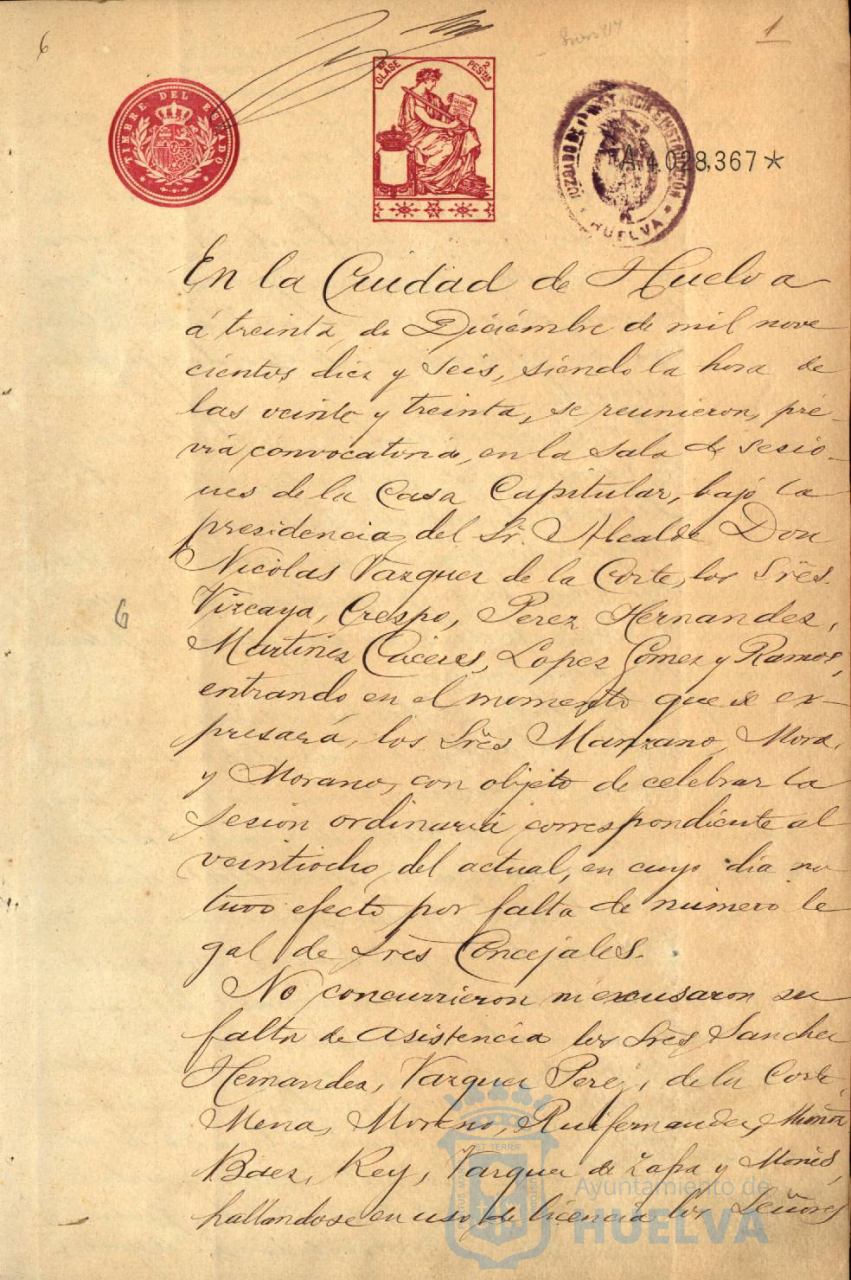 6
1
TIMBRE DEL ESTADO
CLASE
2 PESTAS
JUZGADO DE 1ª INSTANCIA E INSTRUCCIÓN
HUELVA
A4.028,367*
En la Ciudad de Huelva
á treinta de Diciembre de mil nove
cientos diez y seis, siendo la hora de
las veinte y treinta, se reunieron, pré-
via convocatoria, en la Sala de sesio-
nes de la Casa Capitular, bajo la
presidencia del Sr. Alcalde Don
Nicolas Vazquez de la Corte, los Srēs.
Vizcaya, Crespo, Perez Hernandez,
6
Martinez Cáceres, Lopez Gomez y Ramos,
entrando en el momento que se ex-
presará, los Srēs Manzano, Mora,
y Morano, con objeto de celebrar la
sesion ordinaria correspondiente al
veintiocho del actual, en cuyo dia no
tuvo efecto por falta de número le
gal de Srēs Concejales.
No concurrieron ni excusaron su
falta de asistencia los Srēs Sanchez
Hernandez, Vazquez Perez, de la Corte,
Mena, Moreno, Ruifernandez,
Báez, Rey, Vazquez de Zafra y Monís,
hallandose en uso de licencia los Señores
Ayuntamiento de
HUELVA